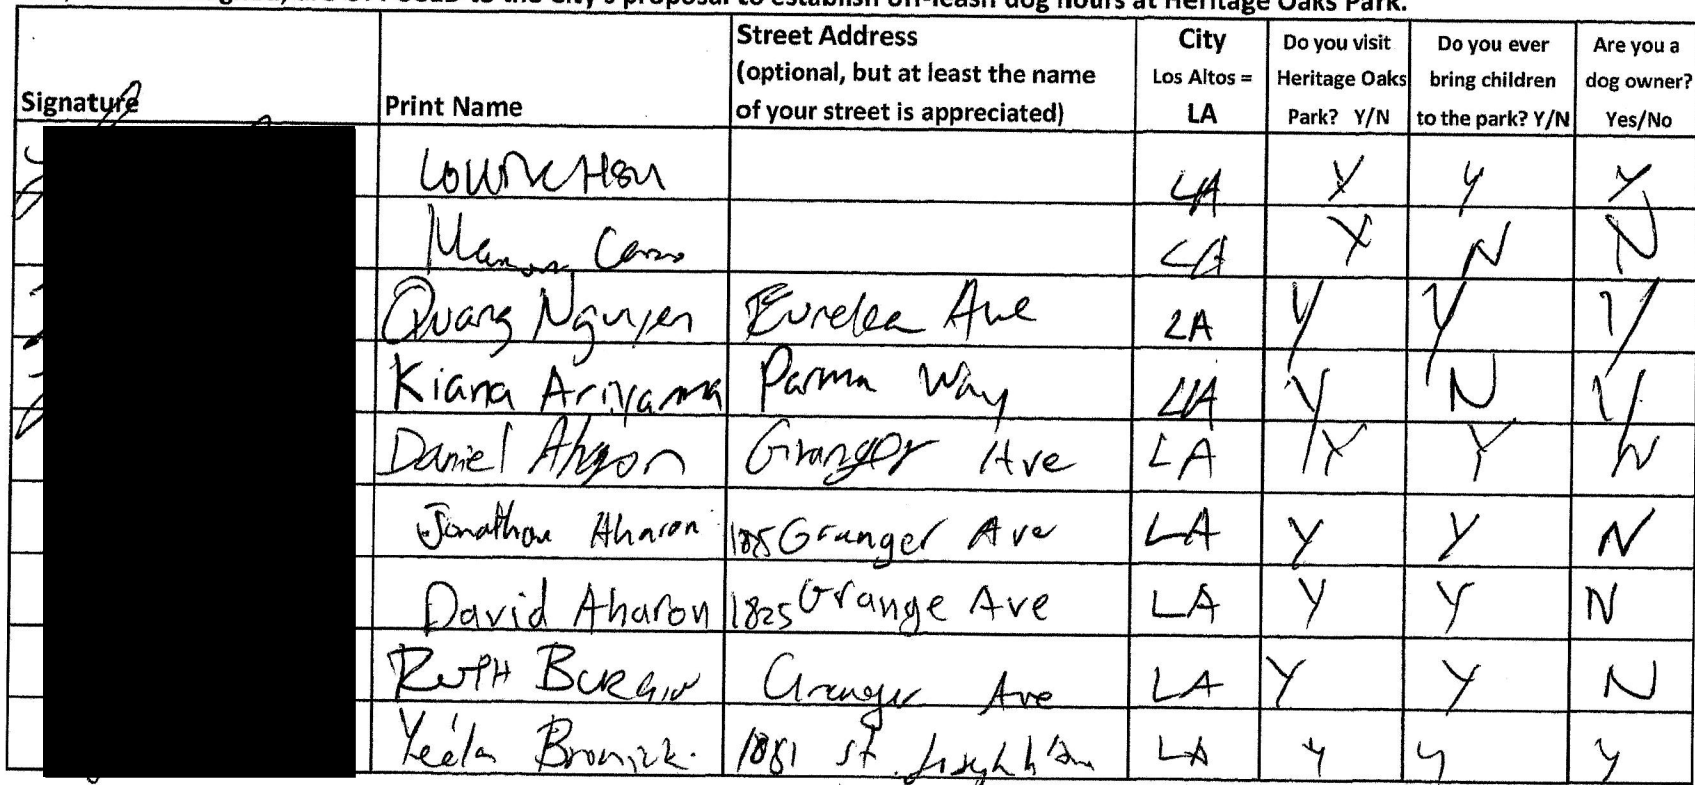 proposal to establish off-leash dog hours at Heritage Oaks Park.
Signature Print Name Street Address (optional, but at least the name of your street is appreciated) City Los Altos = LA Do you visit Heritage Oaks Park? Y/N Do you ever bring children to the park? Y/N Are you a dog owner? Yes/No
LA Y Y Y
LA Y N N
Quang Nguyen Eureka Ave LA Y Y Y
Kiana Ariyama Parma Way LA Y N Y
Daniel Granger Ave LA Y Y N
Jonathan Aharon Granger Ave LA Y Y N
David Aharon 1825 Grange Ave LA Y Y N
RUTH Granger Ave LA Y Y N
1881 St. LA Y Y Y